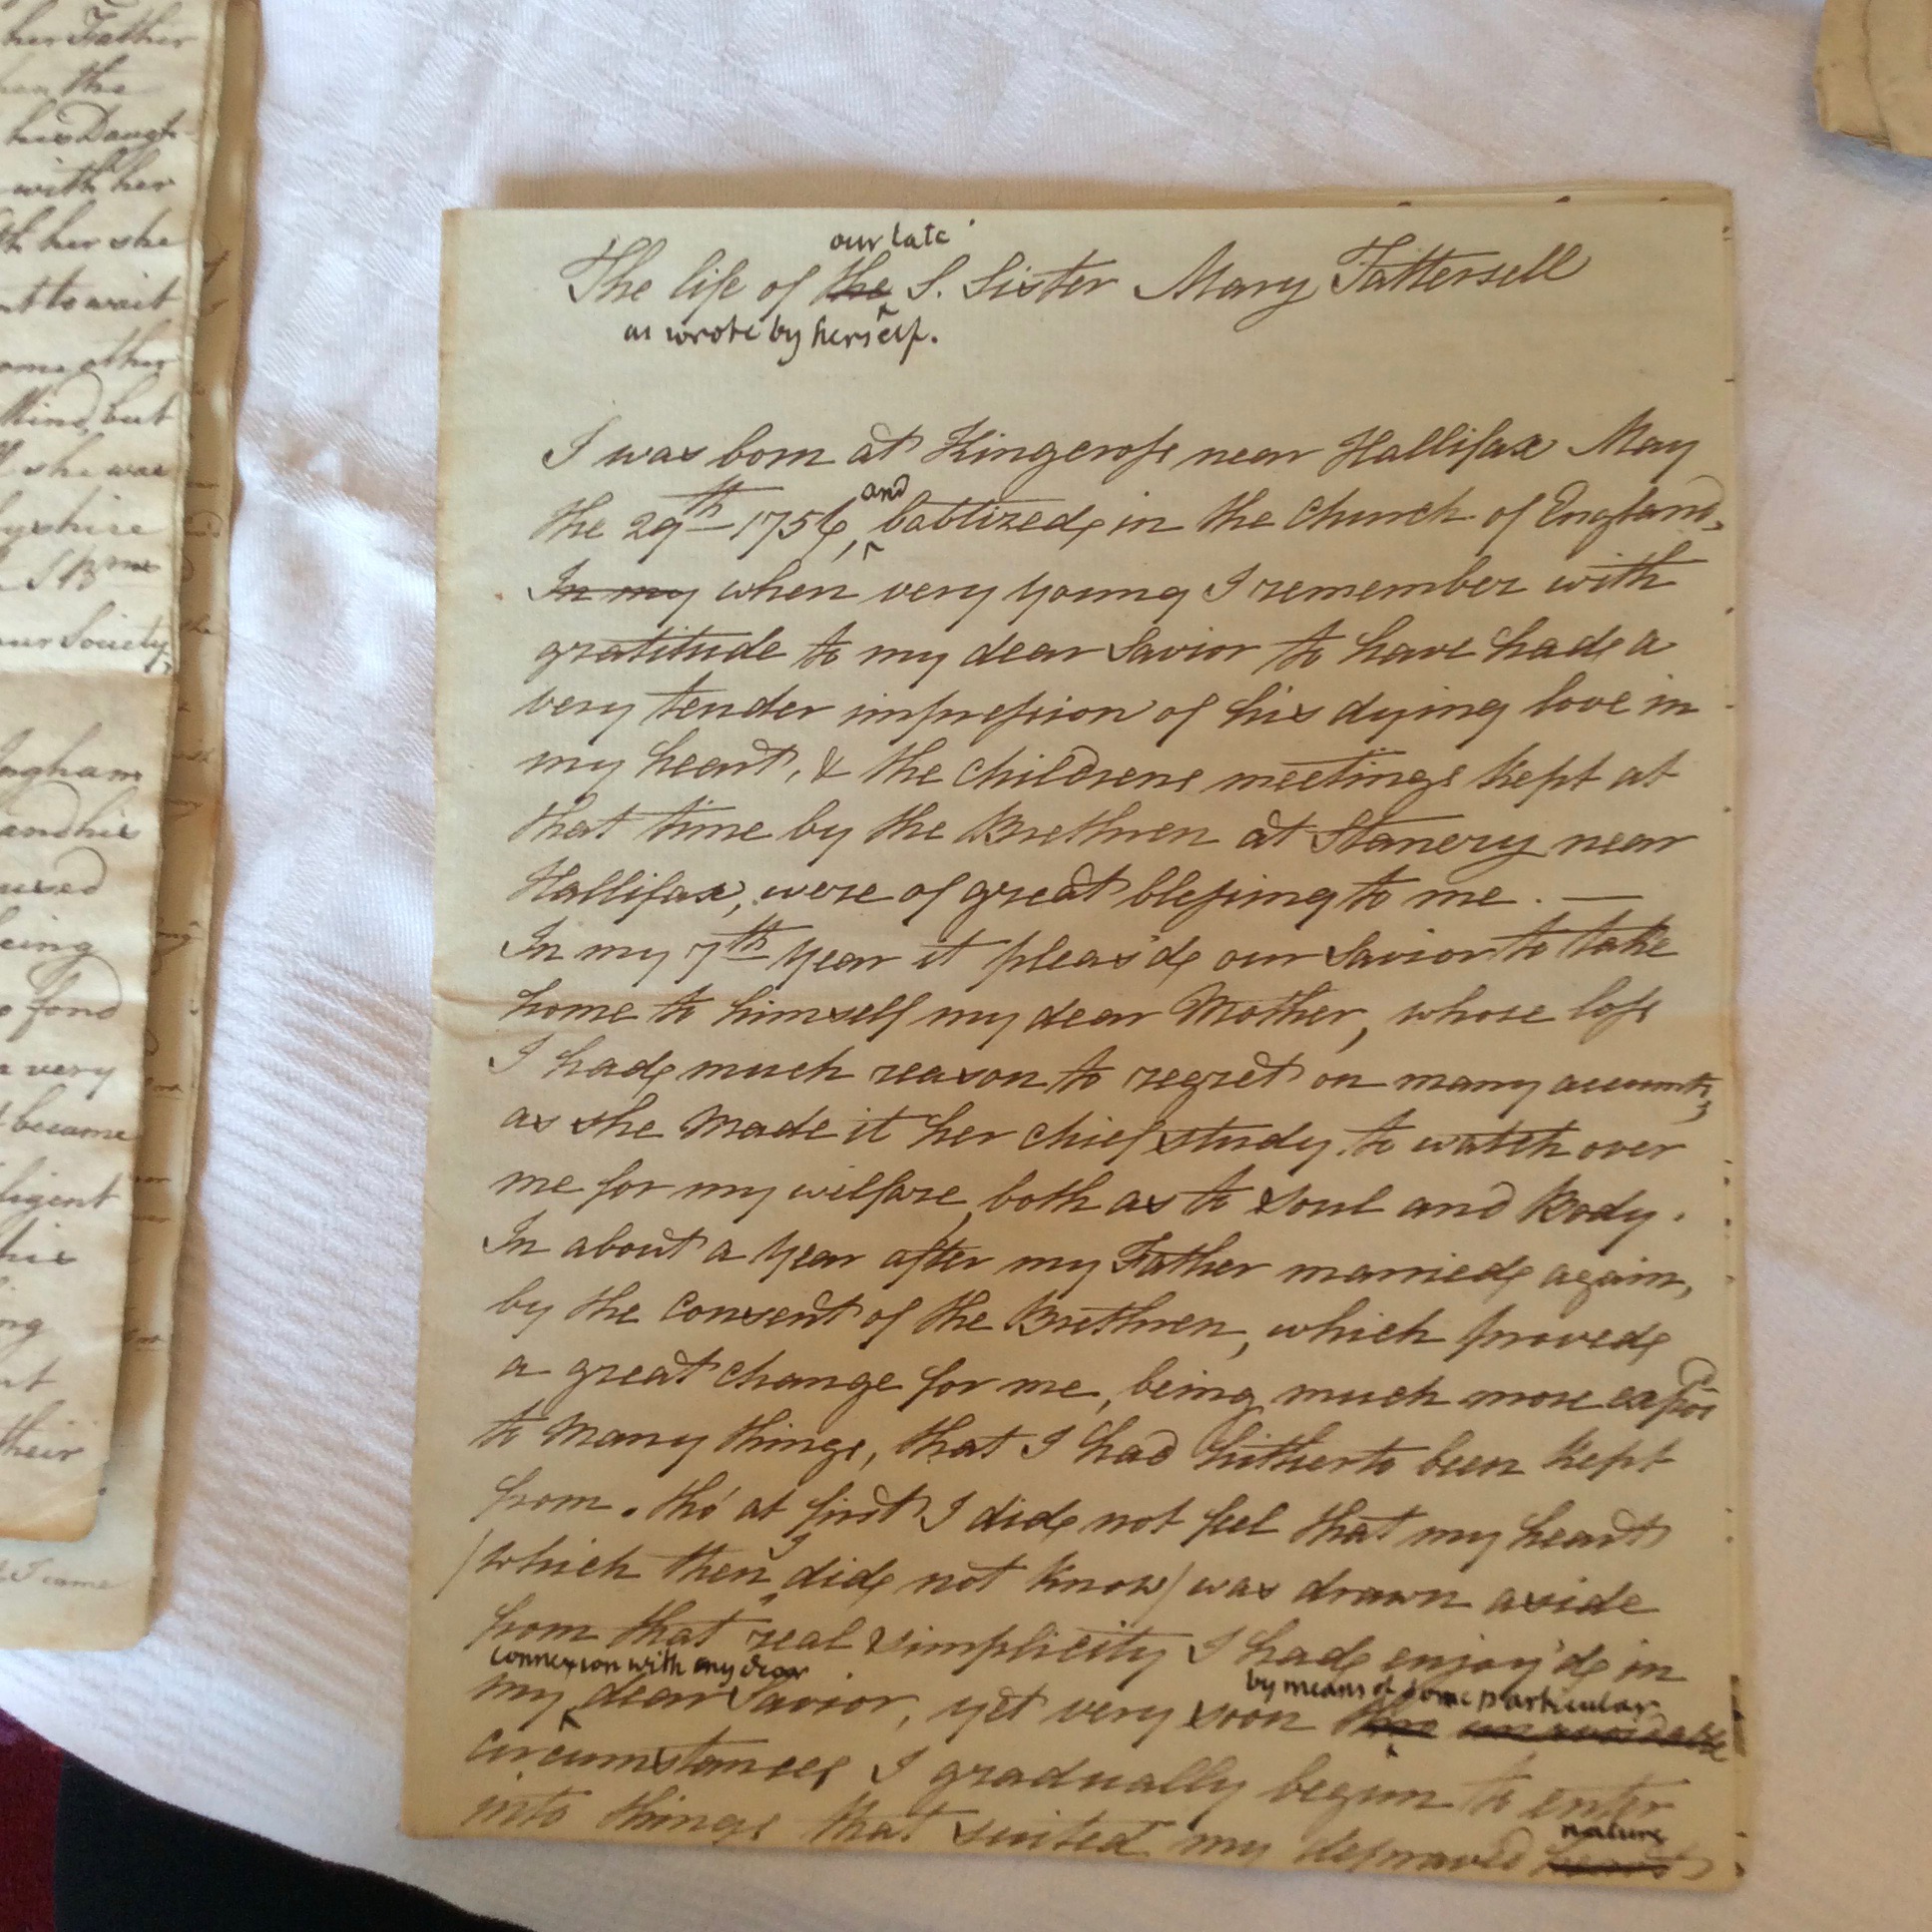 her Father
the
his Daugh-
with her
her she
nt to wait
other
Mind, but
she was
yshire
our Society,
Ingham
and his
used
being
fond
very
became
ligent
his
their
I came
our late
The life of the S. Sister Mary Tattersell
as wrote by herself.
I was born at Kingcross near Hallifax May
and
the 29th 1756, babtized in the Church of England,
In my when very young I remember with
gratitude to my dear Savior to have had a
very tender impression of his dying love in
my heart, & the Childrens meetings kept at
that time by the Brethren at Stanery near
Hallifax, were of great blessing to me. —
In my 7th year it pleas'd our Savior to take
home to himself my dear Mother, whose loss
I had much reason to regret on many accounts,
as she made it her chief study to watch over
me for my welfare, both as to Soul and Body.
In about a year after my Father married again,
by the Consent of the Brethren, which proved
a great Change for me, being much more expos'd
to many things, that I had hitherto been kept
from. tho' at first I did not feel that my heart
I
(which then did not know) was drawn aside
from that real simplicity I had enjoy'd in
connexion with my dear
my dear Savior, yet very soon
by means of some particular
circumstances I gradually begun to enter
into things that suited my depraved heart
nature